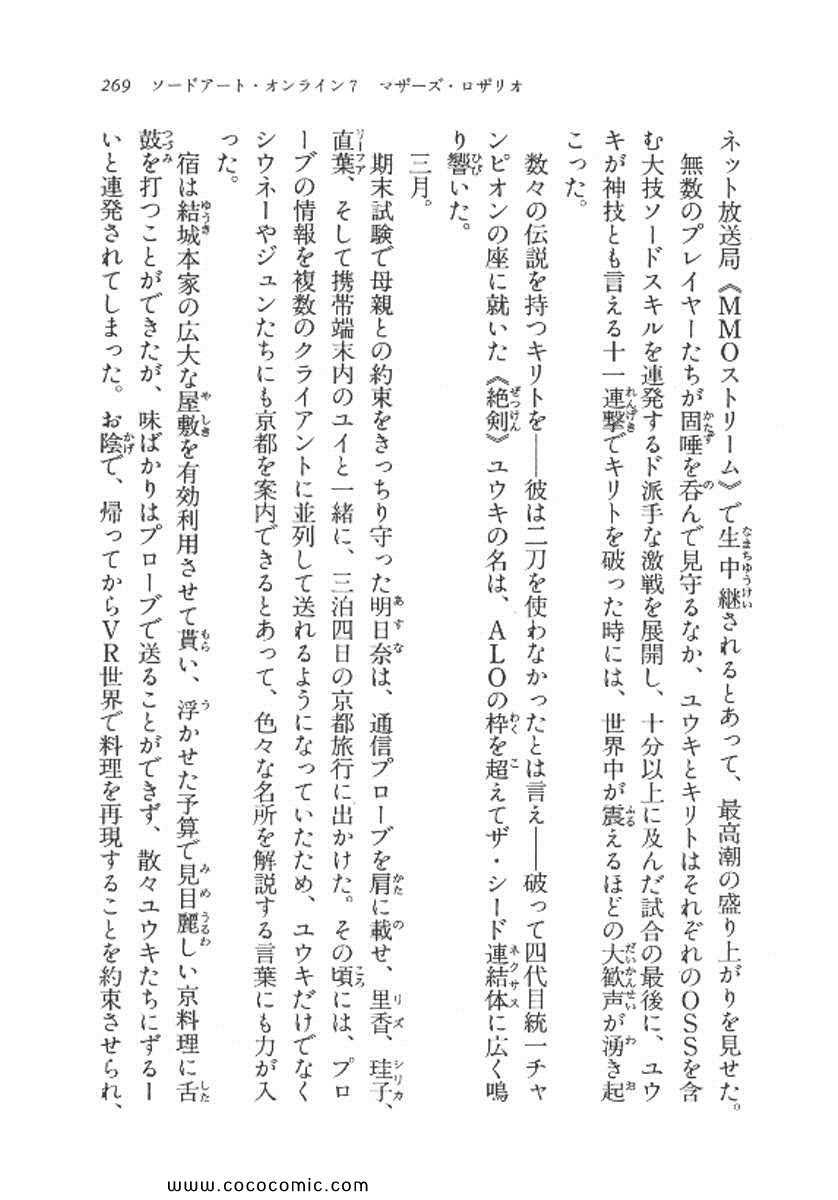 269　ソードアート・オンライン7　マザーズ・ロザリオ
ネット放送局《MMOストリーム》で生中継されるとあって、最高潮の盛り上がりを見せた。
　無数のプレイヤーたちが固唾を呑んで見守るなか、ユウキとキリトはそれぞれのOSSを含
む大技ソードスキルを連発するド派手な激戦を展開し、十分以上に及んだ試合の最後に、ユウ
キが神技とも言える十一連撃でキリトを破った時には、世界中が震えるほどの大歓声が湧き起
こった。
　数々の伝説を持つキリトを――彼は二刀を使わなかったとは言え――破って四代目統一チャ
ンピオンの座に就いた《絶剣》ユウキの名は、ALOの枠を超えてザ・シード連結体に広く鳴
り響いた。
　三月。
　期末試験で母親との約束をきっちり守った明日奈は、通信プローブを肩に載せ、里香、珪子、
直葉、そして携帯端末内のユイと一緒に、三泊四日の京都旅行に出かけた。その頃には、プロ
ーブの情報を複数のクライアントに並列して送れるようになっていたため、ユウキだけでなく
シウネーやジュンたちにも京都を案内できるとあって、色々な名所を解説する言葉にも力が入
った。
　宿は結城本家の広大な屋敷を有効利用させて貰い、浮かせた予算で見目麗しい京料理に舌
鼓を打つことができたが、味ばかりはプローブで送ることができず、散々ユウキたちにずるー
いと連発されてしまった。お陰で、帰ってからVR世界で料理を再現することを約束させられ、
www.cococomic.com